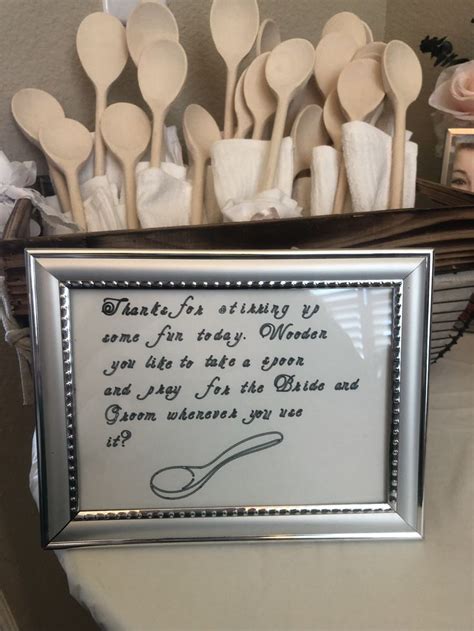 Thanks for stirring up
some fun today. Wooden
you like to take a spoon
and pray for the Bride and
Groom whenever you use
it?